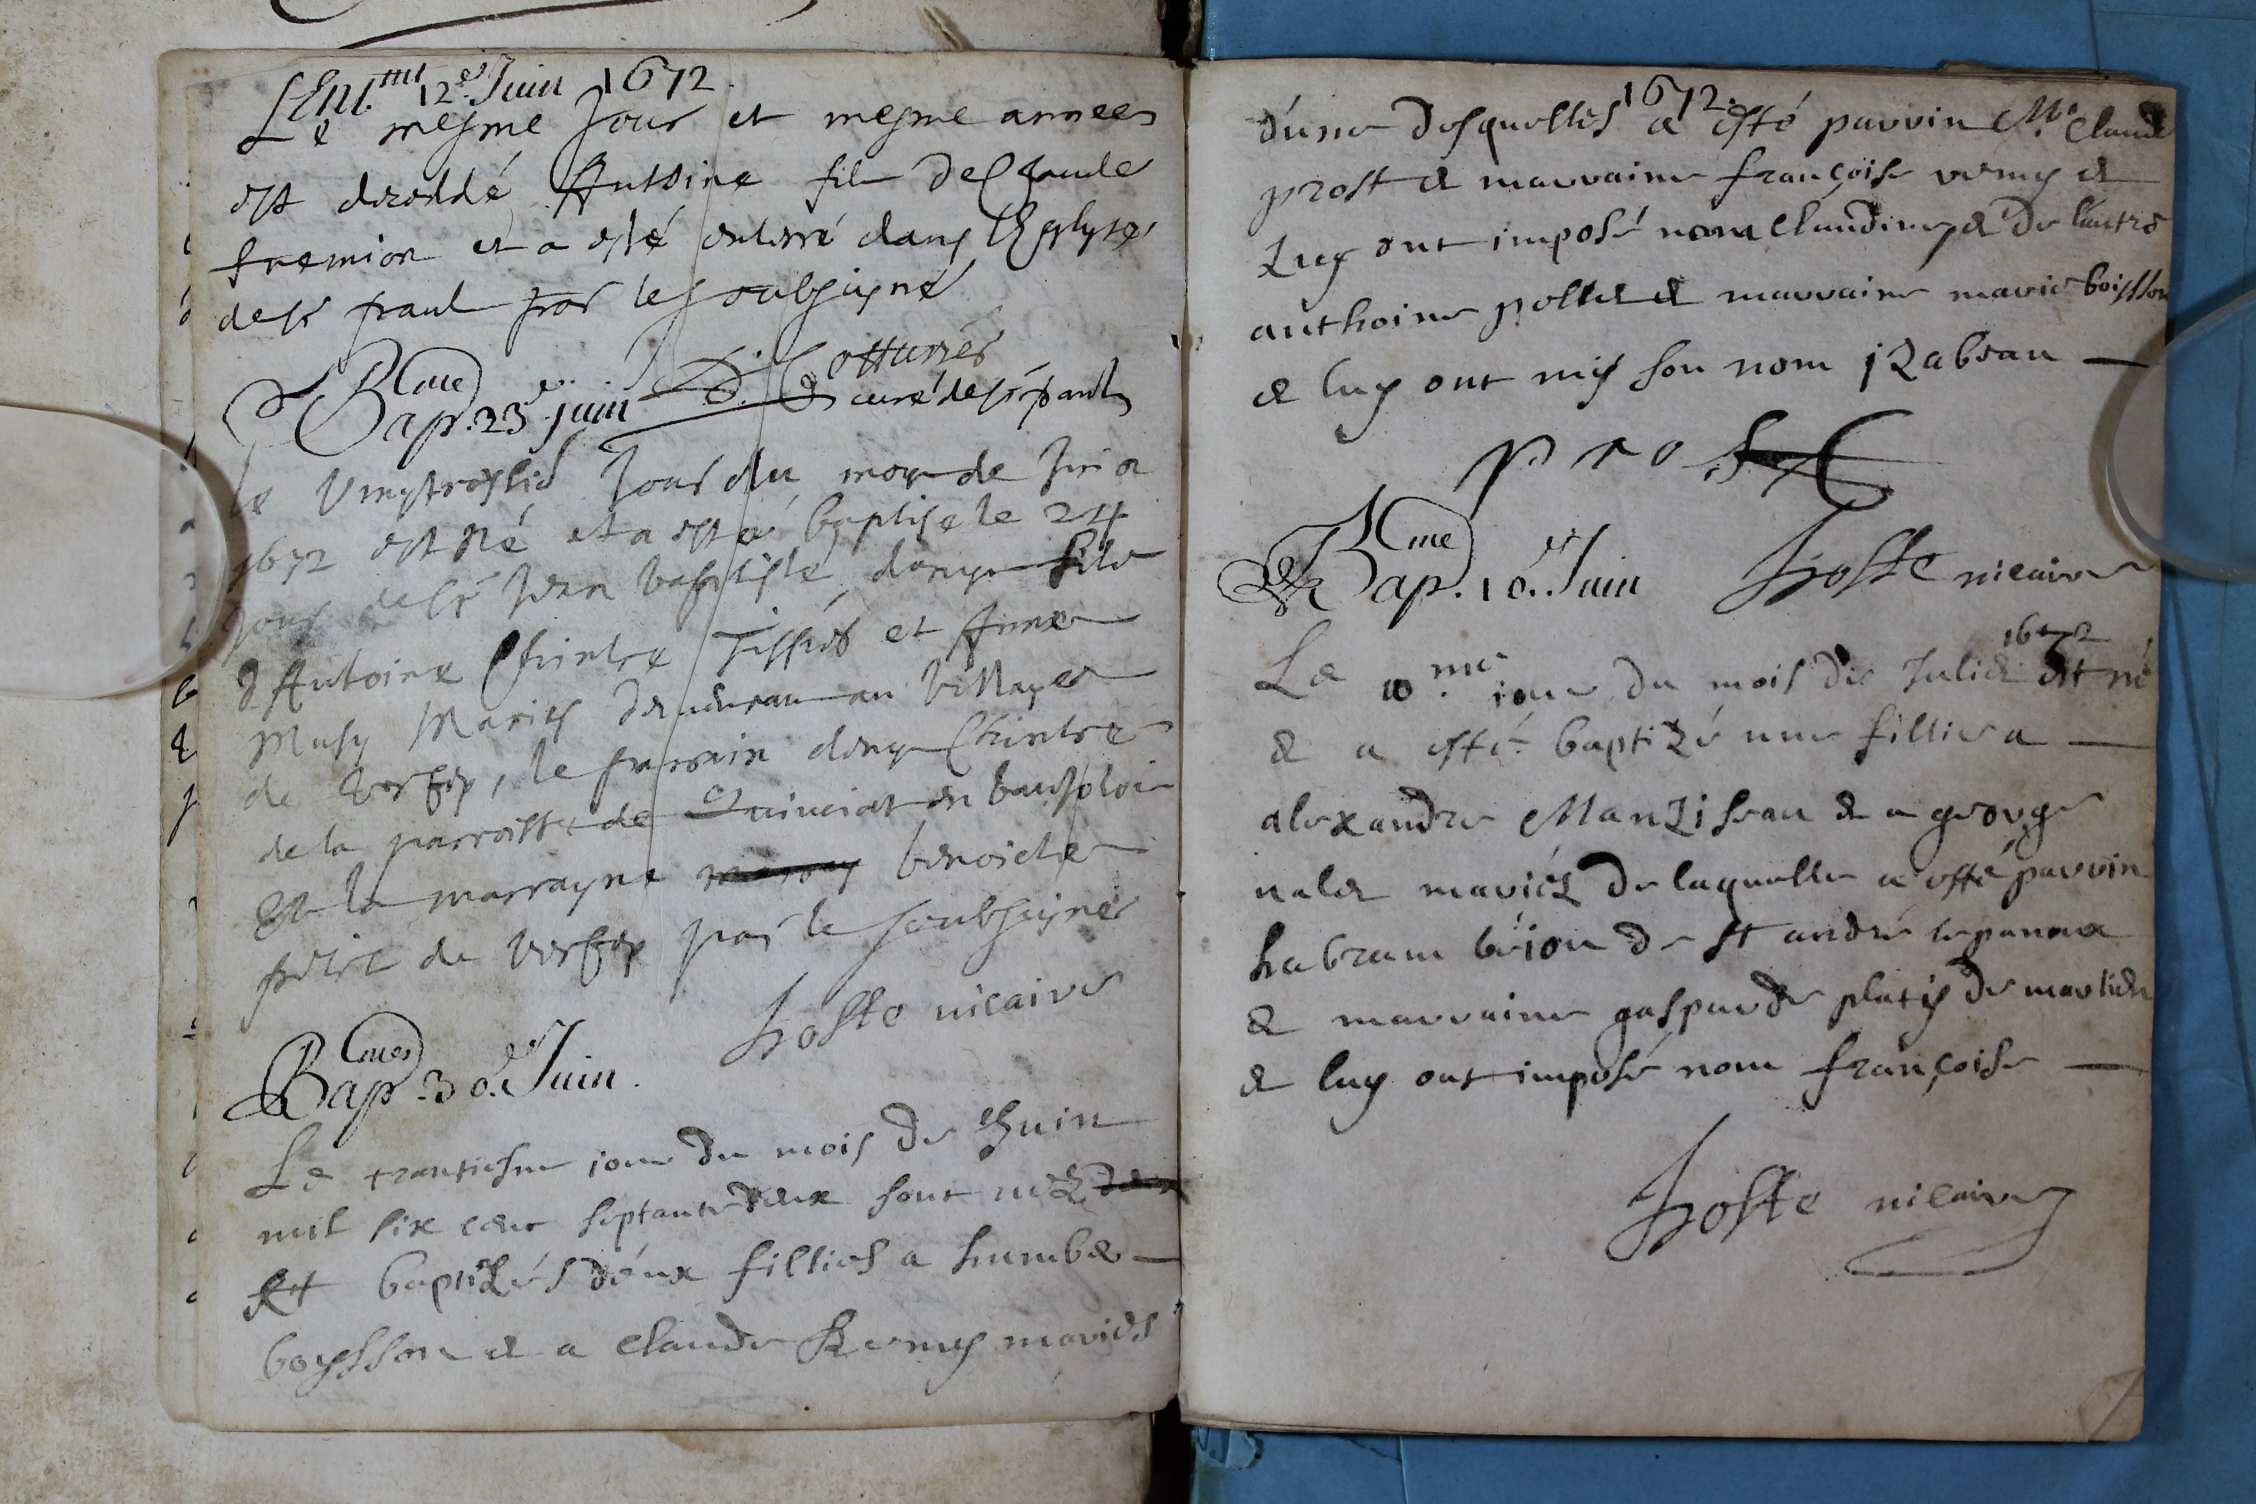 L'Ent.mt 12e. Juin 1672.
Le mesme Jour et mesme annee
est decedé Antoine fils de Claude
fremion et a esté enterré dans l'Eglyse
de St paul par le soubsigné
D. Cotturier
curé de St paul
Bap.me 23e. juin
le vingtroysie Jour du moys de Jun a
1672 est né et a esté baptise le 24
jour de St Jean baptiste, denys fils
d'Antoine Chintre Tissier et Anne
Musy Mariés demeurant au village
de , le parrain denys Chintre
de la parroisse de Quinciat en baujoloi
Et la marrayne benoicte
petit de par le soubsigné
hoste vicaire
Bap.mes 30e. Juin.
Le trantiesme jour du mois de Juin
mil six cent septante deux sont nez
Et baptizés deux fillies a humber
boysson & a claude Remy mariés
1672.
d'une desquelles a esté parvin Mr. Claude
prost & marvaine françoise remy &
Luy ont imposé nom Claudine & de l'autre
anthoine pollet & marvaine marie boisson
& luy ont mis son nom jzabeau
prost
Bap.me 10e. Juin hoste vicaire
1672
Le 10.me jour du mois de Julié est né
& a esté baptizé une fillie a
alexandre Manziseau & a george
nalet mariéz de laquelle a esté parvin
habram brion de St andré lepanoux
& marvaine gasparde platy de marlieu
& luy ont imposé nom françoise
hoste vicaire